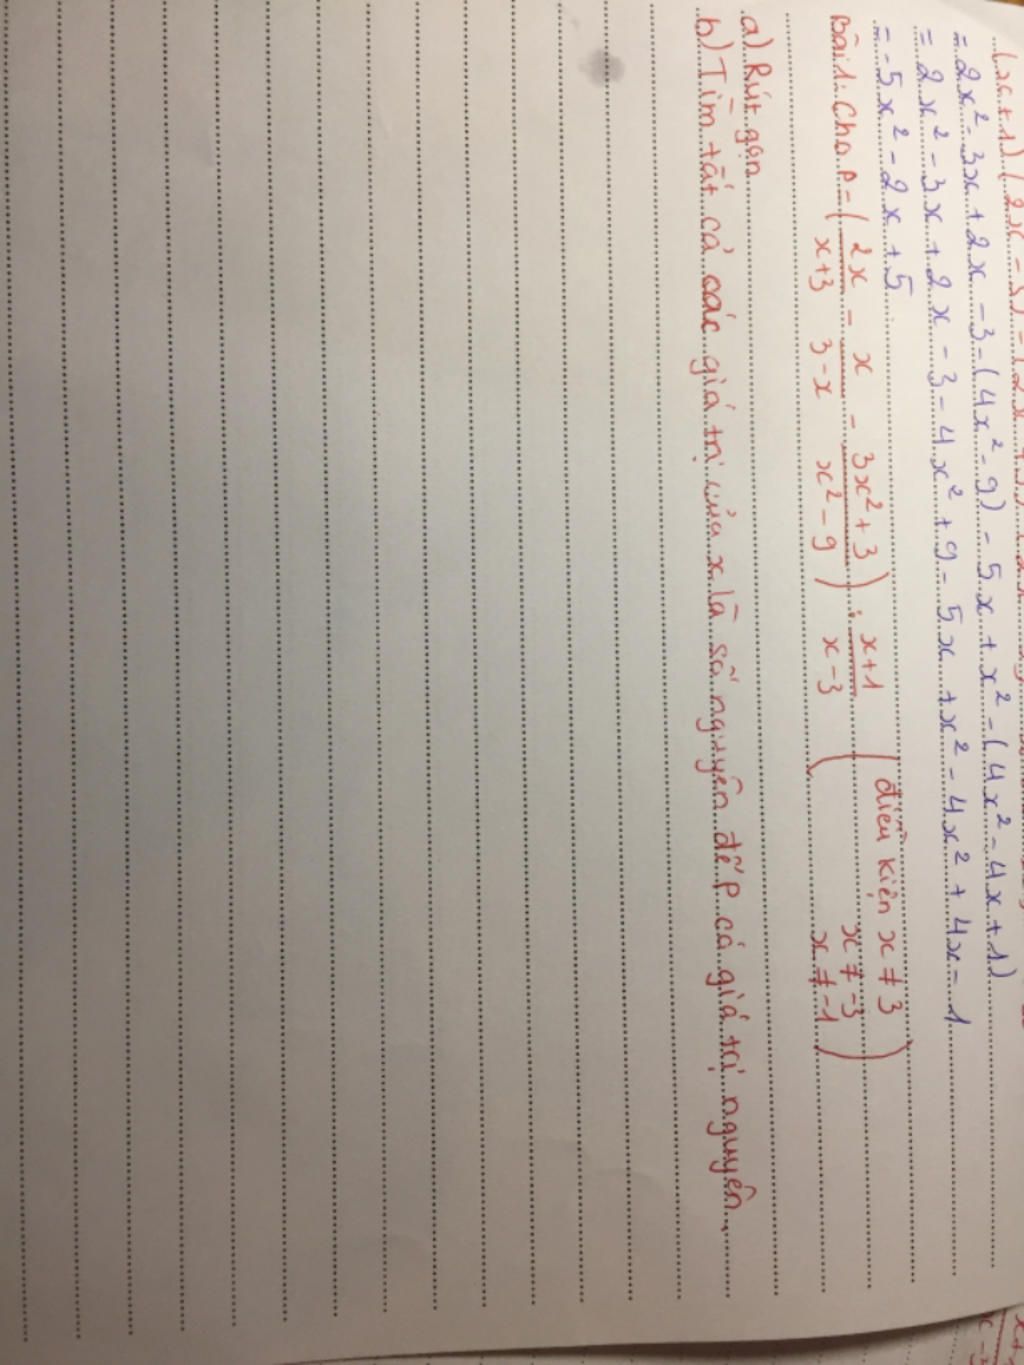 (x+1)(2x-3)
= 2x² - 3x + 2x - 3 - (4x² - 9) - 5x + x² - (4x² - 4x + 1)
= 2x² - 3x + 2x - 3 - 4x² + 9 - 5x + x² - 4x² + 4x - 1
= -5x² - 2x + 5
Bài 1: Cho P = (2x/x+3 - x/3-x - 3x²+3/x²-9) : x+1/x-3 (điều kiện x ≠ 3
x ≠ -3
x ≠ -1)
a) Rút gọn
b) Tìm tất cả các giá trị của x là số nguyên để P có giá trị nguyên.